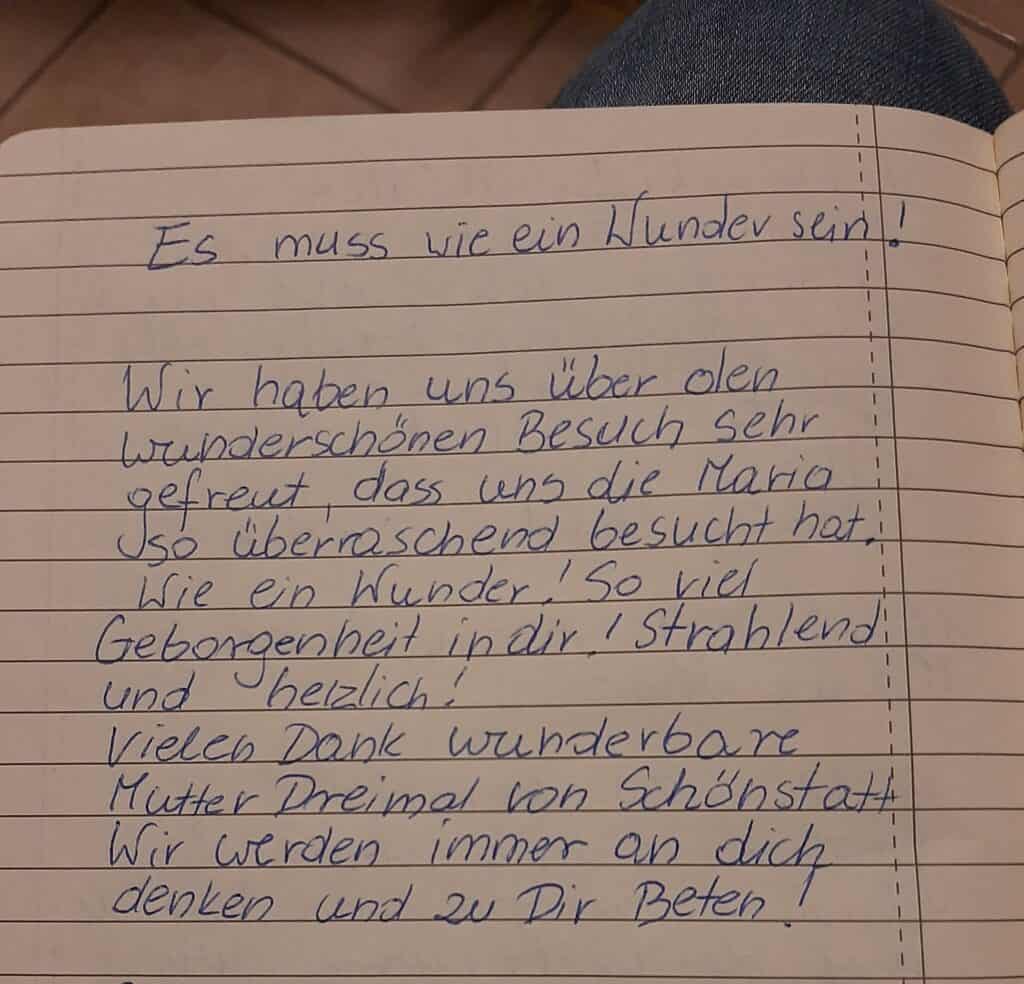 Es muss wie ein Wunder sein!
Wir haben uns über den
wunderschönen Besuch sehr
gefreut, dass uns die Maria
so überraschend besucht hat.
Wie ein Wunder! So viel
Geborgenheit in dir! Strahlend
und herzlich!
Vielen Dank wunderbare
Mutter Dreimal von Schönstatt
Wir werden immer an dich
denken und zu Dir Beten!